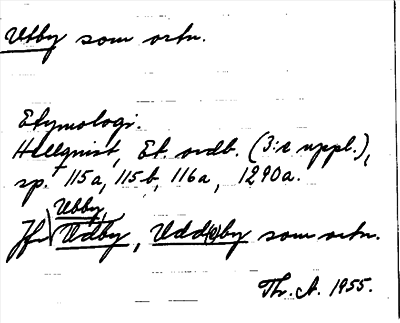 Utby som ortn.
Etymologi.
Hellquist, Et. ordb. (3:e uppl.),
sp. 115a, 115b, 116a, 1290a.
Ubby,
Jfr Udby, Udd(e)by som ortn.
Th. A. 1955.